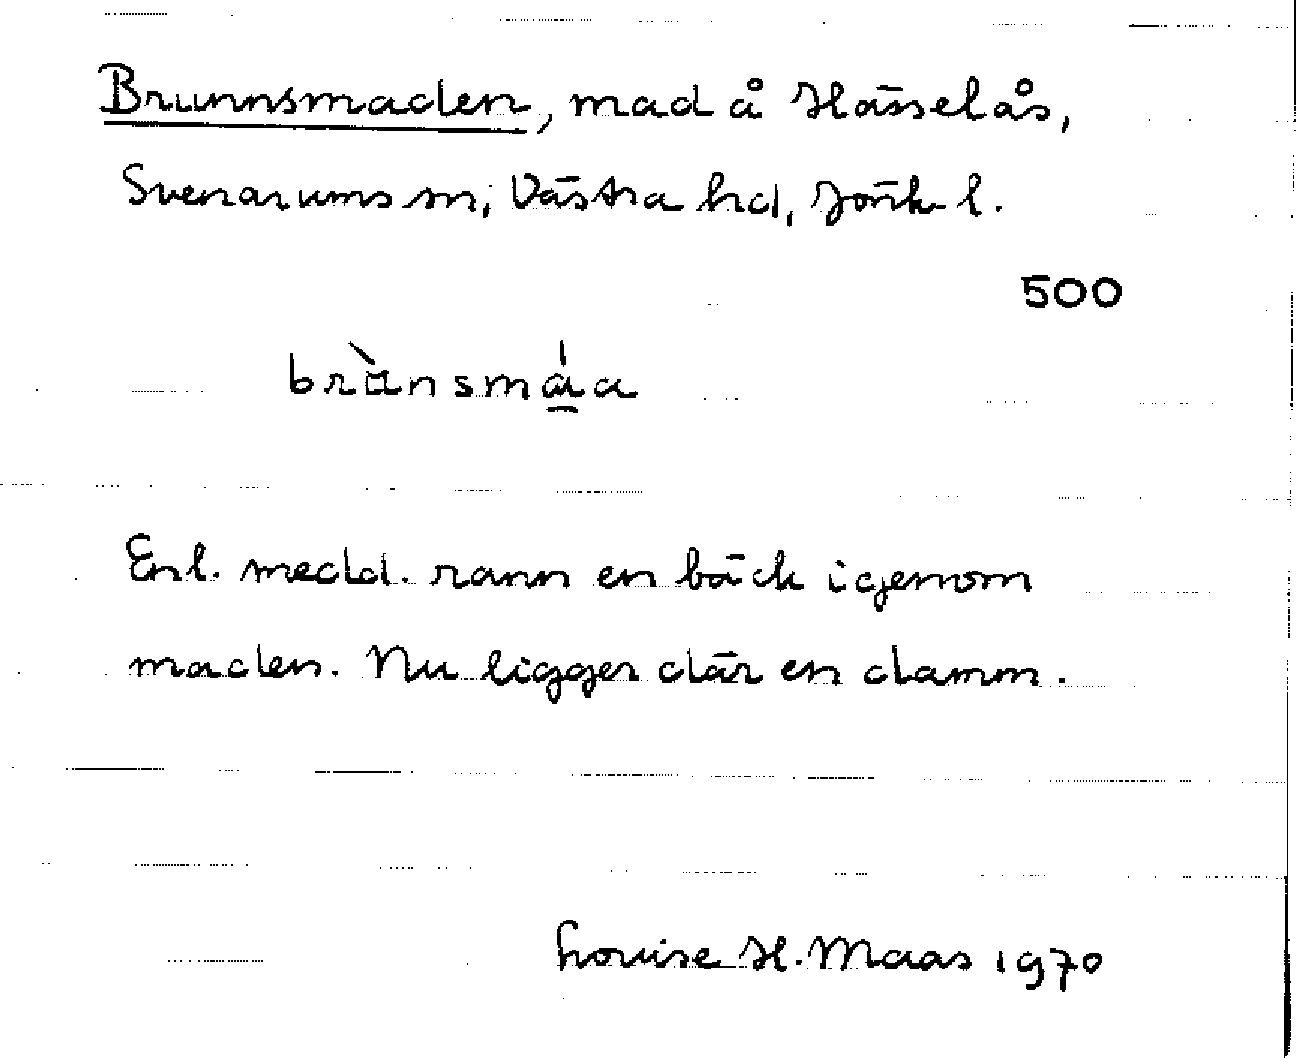 Brunnsmaden, mad å Hässelås,
Svenarums sn, Västra hd, Jönk l.
500
brànsmáa
Enl. medd. rann en bäck igenom
maden. Nu ligger där en damm.
Louise H. Maas 1970